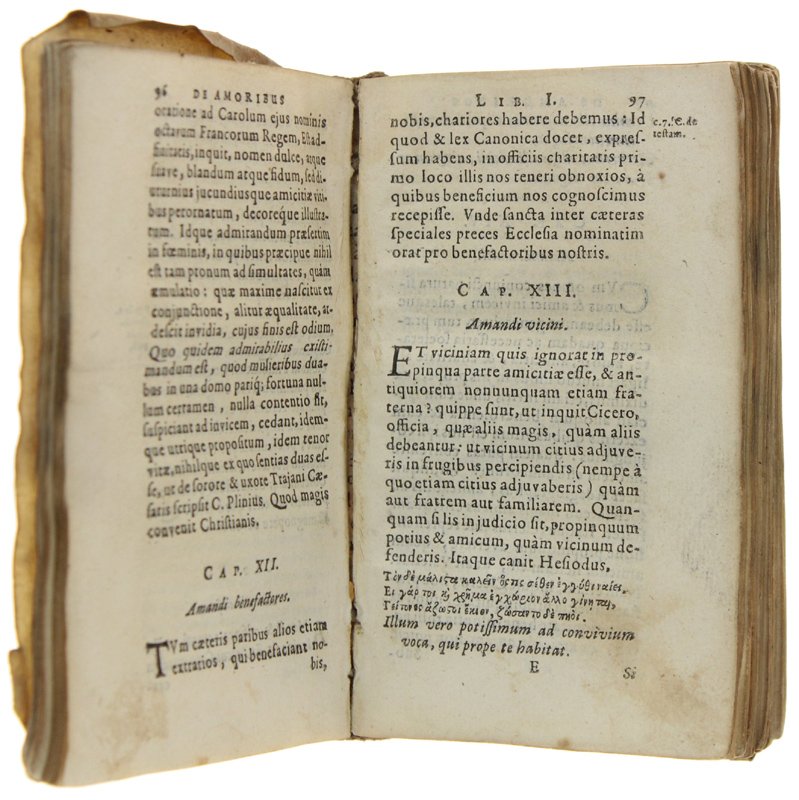 96 DE AMORIBUS
oratione ad Carolum ejus nominis
octavum Francorum Regem, Est ad-
finitatis, inquit, nomen dulce, atque
suave, blandum atque fidum, sed di-
uturnius jucundiusque amicitiæ vici-
bus perornatum, decoreque illustra-
tum. Idque admirandum præsertim
in fœminis, in quibus præcipue nihil
est tam pronum ad simultates, quàm
æmulatio: quæ maxime nascitur ex
conjunctione, alitur æqualitate, ar-
descit invidia, cujus finis est odium.
Quo quidem admirabilius existi-
mandum est, quod mulieribus dua-
bus in una domo pariq; fortuna nul-
lum certamen, nulla contentio fit,
suspiciant ad invicem, cedant, idem-
que utrique propositum, idem tenor
vitæ, nihilque ex quo sentias duas es-
se, ut de sorore & uxore Trajani Cæ-
saris scripsit C. Plinius. Quod magis
convenit Christianis.
CAP. XII.
Amandi benefactores.
TVm cæteris paribus alios etiam
extratios, qui benefaciant no-
bis,
LIB. I. 97
nobis, chariores habere debemus: Id
quod & lex Canonica docet, expres-
sum habens, in officiis charitatis pri-
mo loco illis nos teneri obnoxios, à
quibus beneficium nos cognoscimus
recepisse. Vnde sancta inter cæteras
speciales preces Ecclesia nominatim
orat pro benefactoribus nostris.
c. 7. de
testam.
CAP. XIII.
Amandi vicini.
ET viciniam quis ignorat in pro-
pinqua parte amicitiæ esse, & an-
tiquiorem nonnunquam etiam fra-
terna? quippe sunt, ut inquit Cicero,
officia, quæ aliis magis, quàm aliis
debeantur: ut vicinum citius adjuve-
ris in frugibus percipiendis (nempe à
quo etiam citius adjuvaberis) quàm
aut fratrem aut familiarem. Quan-
quam si lis in judicio sit, propinquum
potius & amicum, quàm vicinum de-
fenderis. Itaque canit Hesiodus,
Τὸν δὲ μάλιστα καλεῖν ὅστις σέθεν ἐγγύθι ναίει.
Εἰ γάρ τοι καὶ χρῆμα ἐγχώριον ἄλλο γένηται,
Γείτονες ἄζωστοι ἔκιον, ζώσαντο δὲ πηοί.
Illum vero potissimum ad convivium
voca, qui prope te habitat.
E
Si